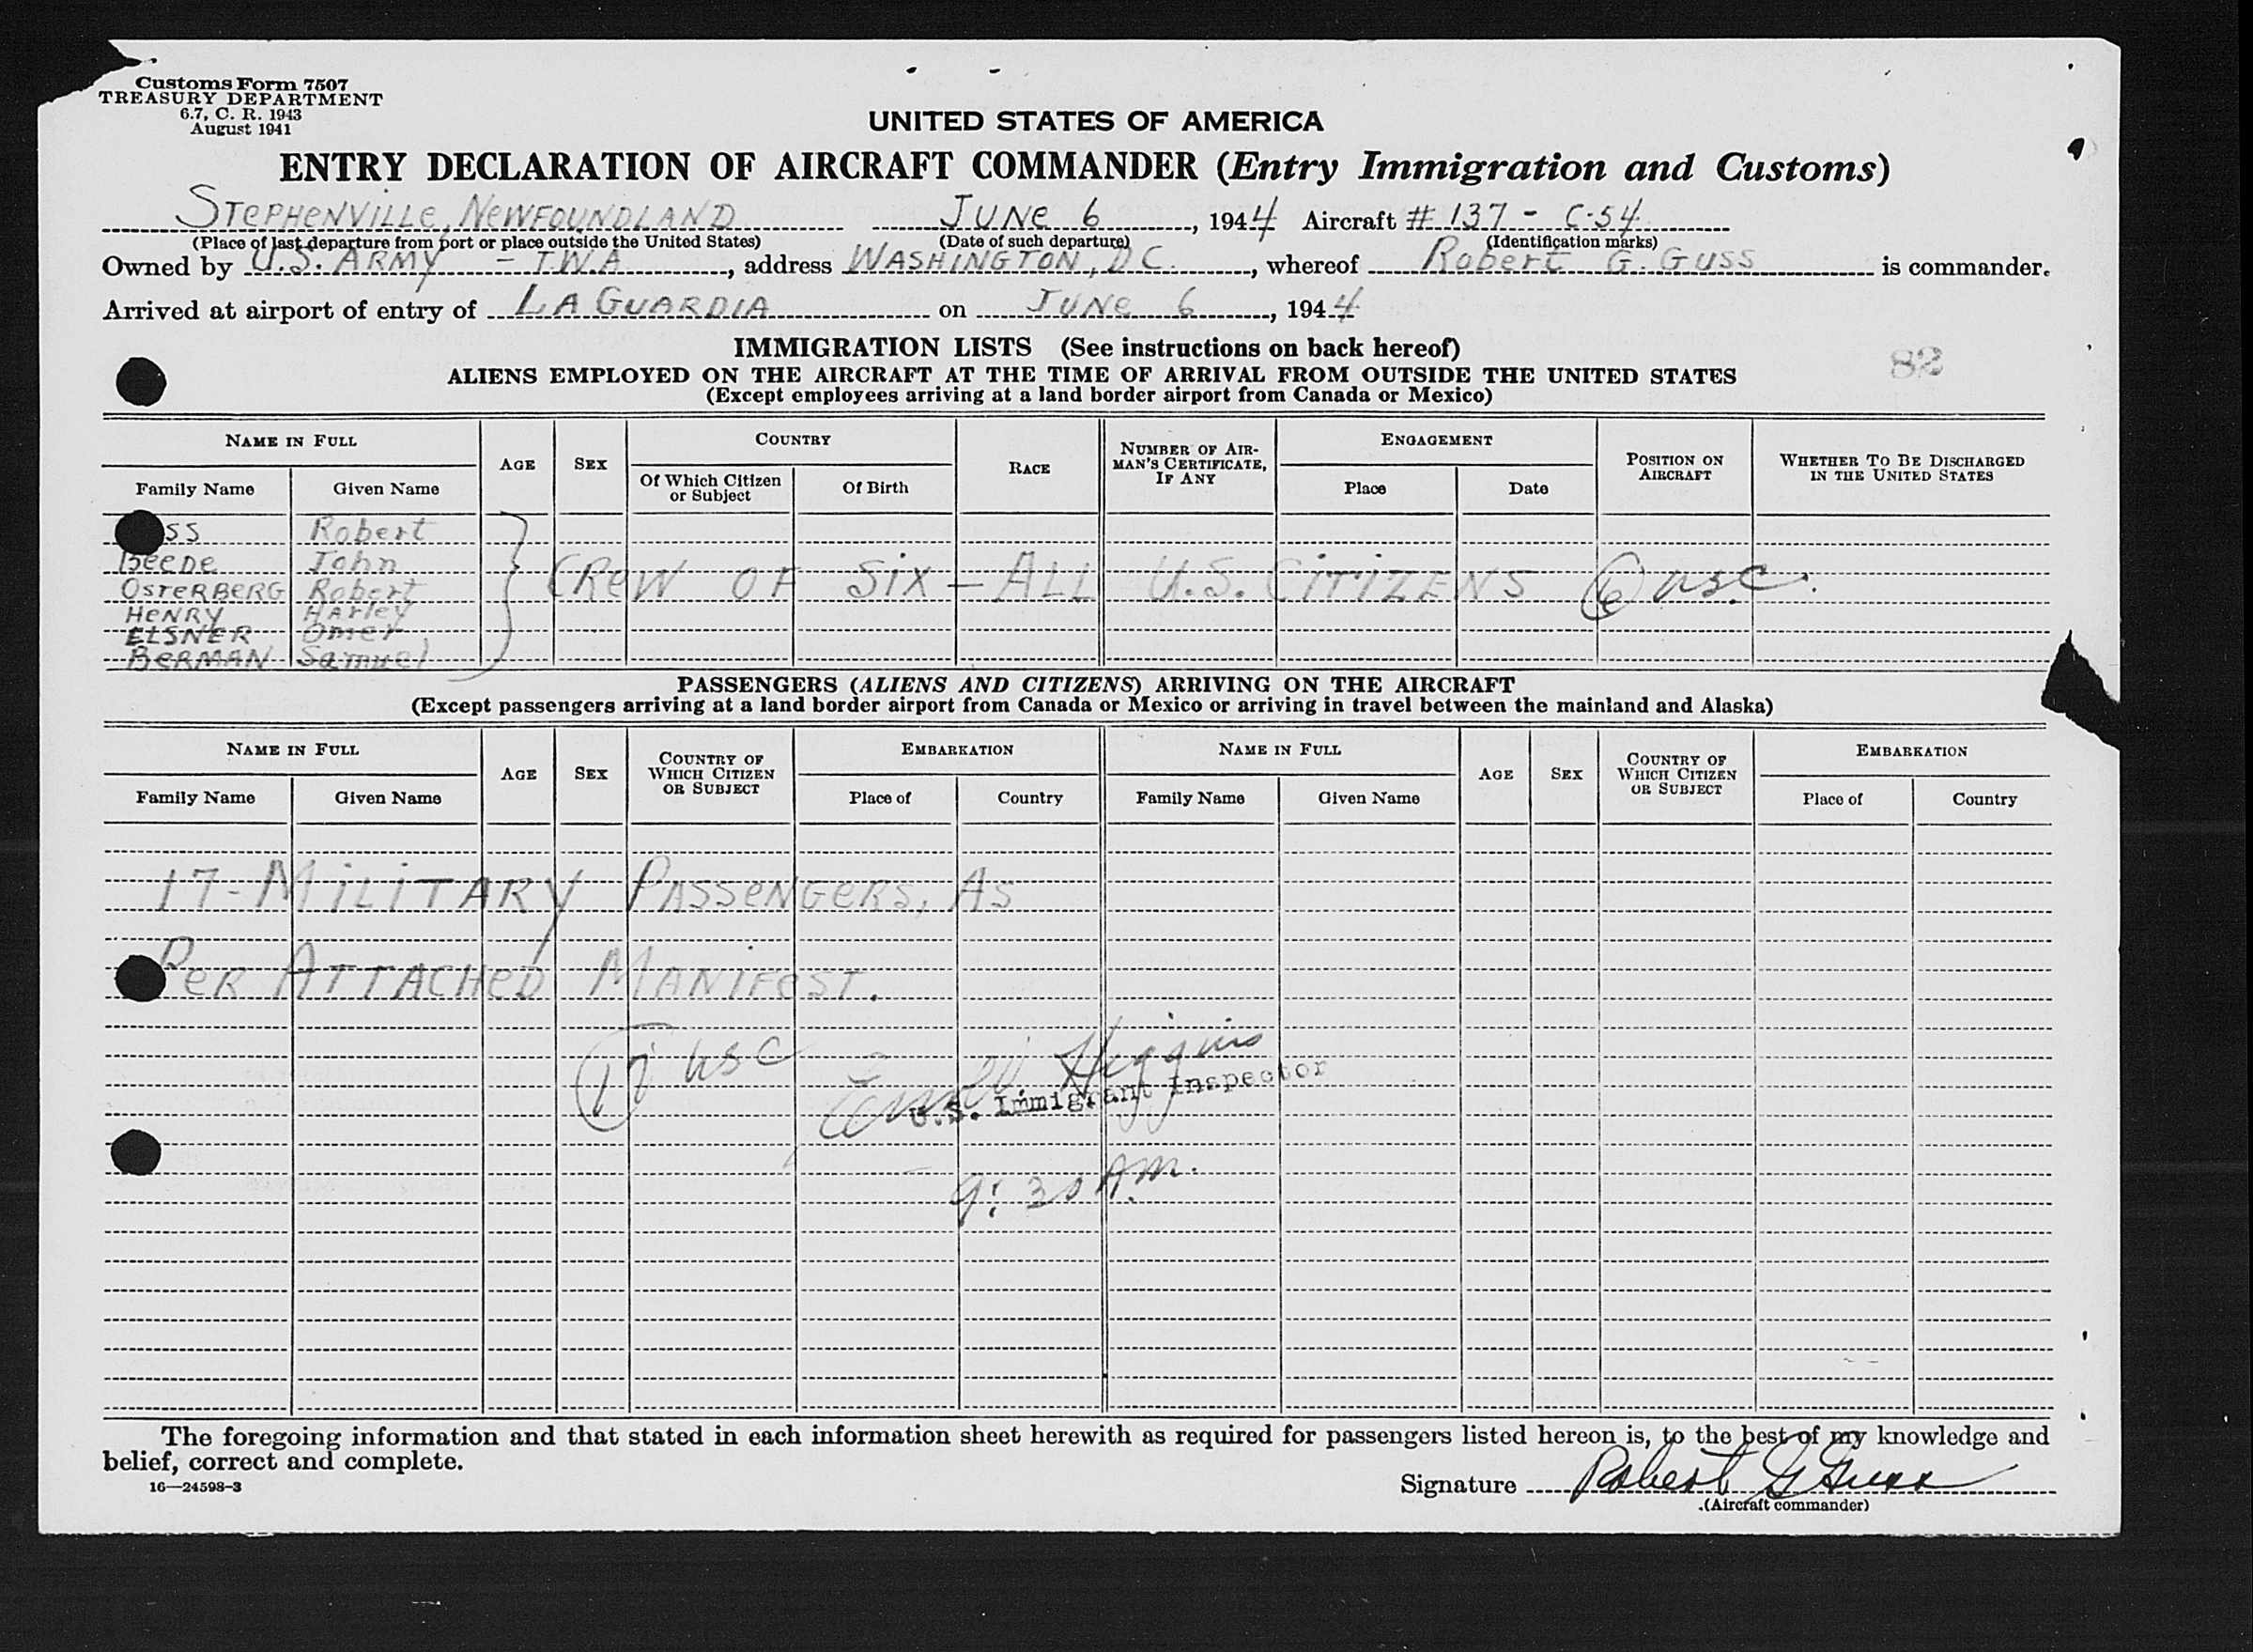 Customs Form 7507
TREASURY DEPARTMENT
6.7, C. R. 1943
August 1941
UNITED STATES OF AMERICA
ENTRY DECLARATION OF AIRCRAFT COMMANDER (Entry Immigration and Customs)
STEPHENVILLE, NEWFOUNDLAND JUNE 6, 1944 Aircraft # 137 - C-54
(Place of last departure from port or place outside the United States) (Date of such departure) (Identification marks)
Owned by U.S. ARMY - TWA, address WASHINGTON, D C., whereof Robert G. Guss is commander.
Arrived at airport of entry of LA GUARDIA on JUNE 6, 1944
IMMIGRATION LISTS (See instructions on back hereof)
82
ALIENS EMPLOYED ON THE AIRCRAFT AT THE TIME OF ARRIVAL FROM OUTSIDE THE UNITED STATES
(Except employees arriving at a land border airport from Canada or Mexico)
NAME IN FULL AGE SEX COUNTRY RACE NUMBER OF AIRMAN'S CERTIFICATE, IF ANY ENGAGEMENT POSITION ON AIRCRAFT WHETHER TO BE DISCHARGED IN THE UNITED STATES
Family Name Given Name Of Which Citizen or Subject Of Birth Place Date
ss Robert
Beede John
OSTERBERG Robert
CREW OF SIX - ALL U.S. CITIZENS (6) usc.
HENRY Harley
ELSNER Omer
BERMAN Samuel
PASSENGERS (ALIENS AND CITIZENS) ARRIVING ON THE AIRCRAFT
(Except passengers arriving at a land border airport from Canada or Mexico or arriving in travel between the mainland and Alaska)
NAME IN FULL AGE SEX COUNTRY OF WHICH CITIZEN OR SUBJECT EMBARKATION NAME IN FULL AGE SEX COUNTRY OF WHICH CITIZEN OR SUBJECT EMBARKATION
Family Name Given Name Place of Country Family Name Given Name Place of Country
17 - MILITARY PASSENGERS, AS
PER ATTACHED MANIFEST.
(17) usc Higgins
U.S. Immigrant Inspector
9:30 A.M.
The foregoing information and that stated in each information sheet herewith as required for passengers listed hereon is, to the best of my knowledge and
belief, correct and complete.
16—24598-3
Signature Robert G Guss
(Aircraft commander)